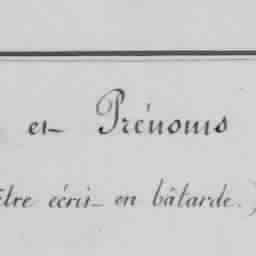 et Prénoms
être écrit en bâtarde.)